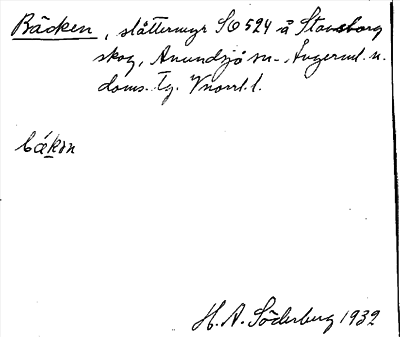 Bäcken, slåttermyr SO 524 å Stavsborg
skog, Anundsjö sn., Ångerml. n.
doms. Tg. Vnorrl. l.
bäkɘn
H. A. Söderberg 1932